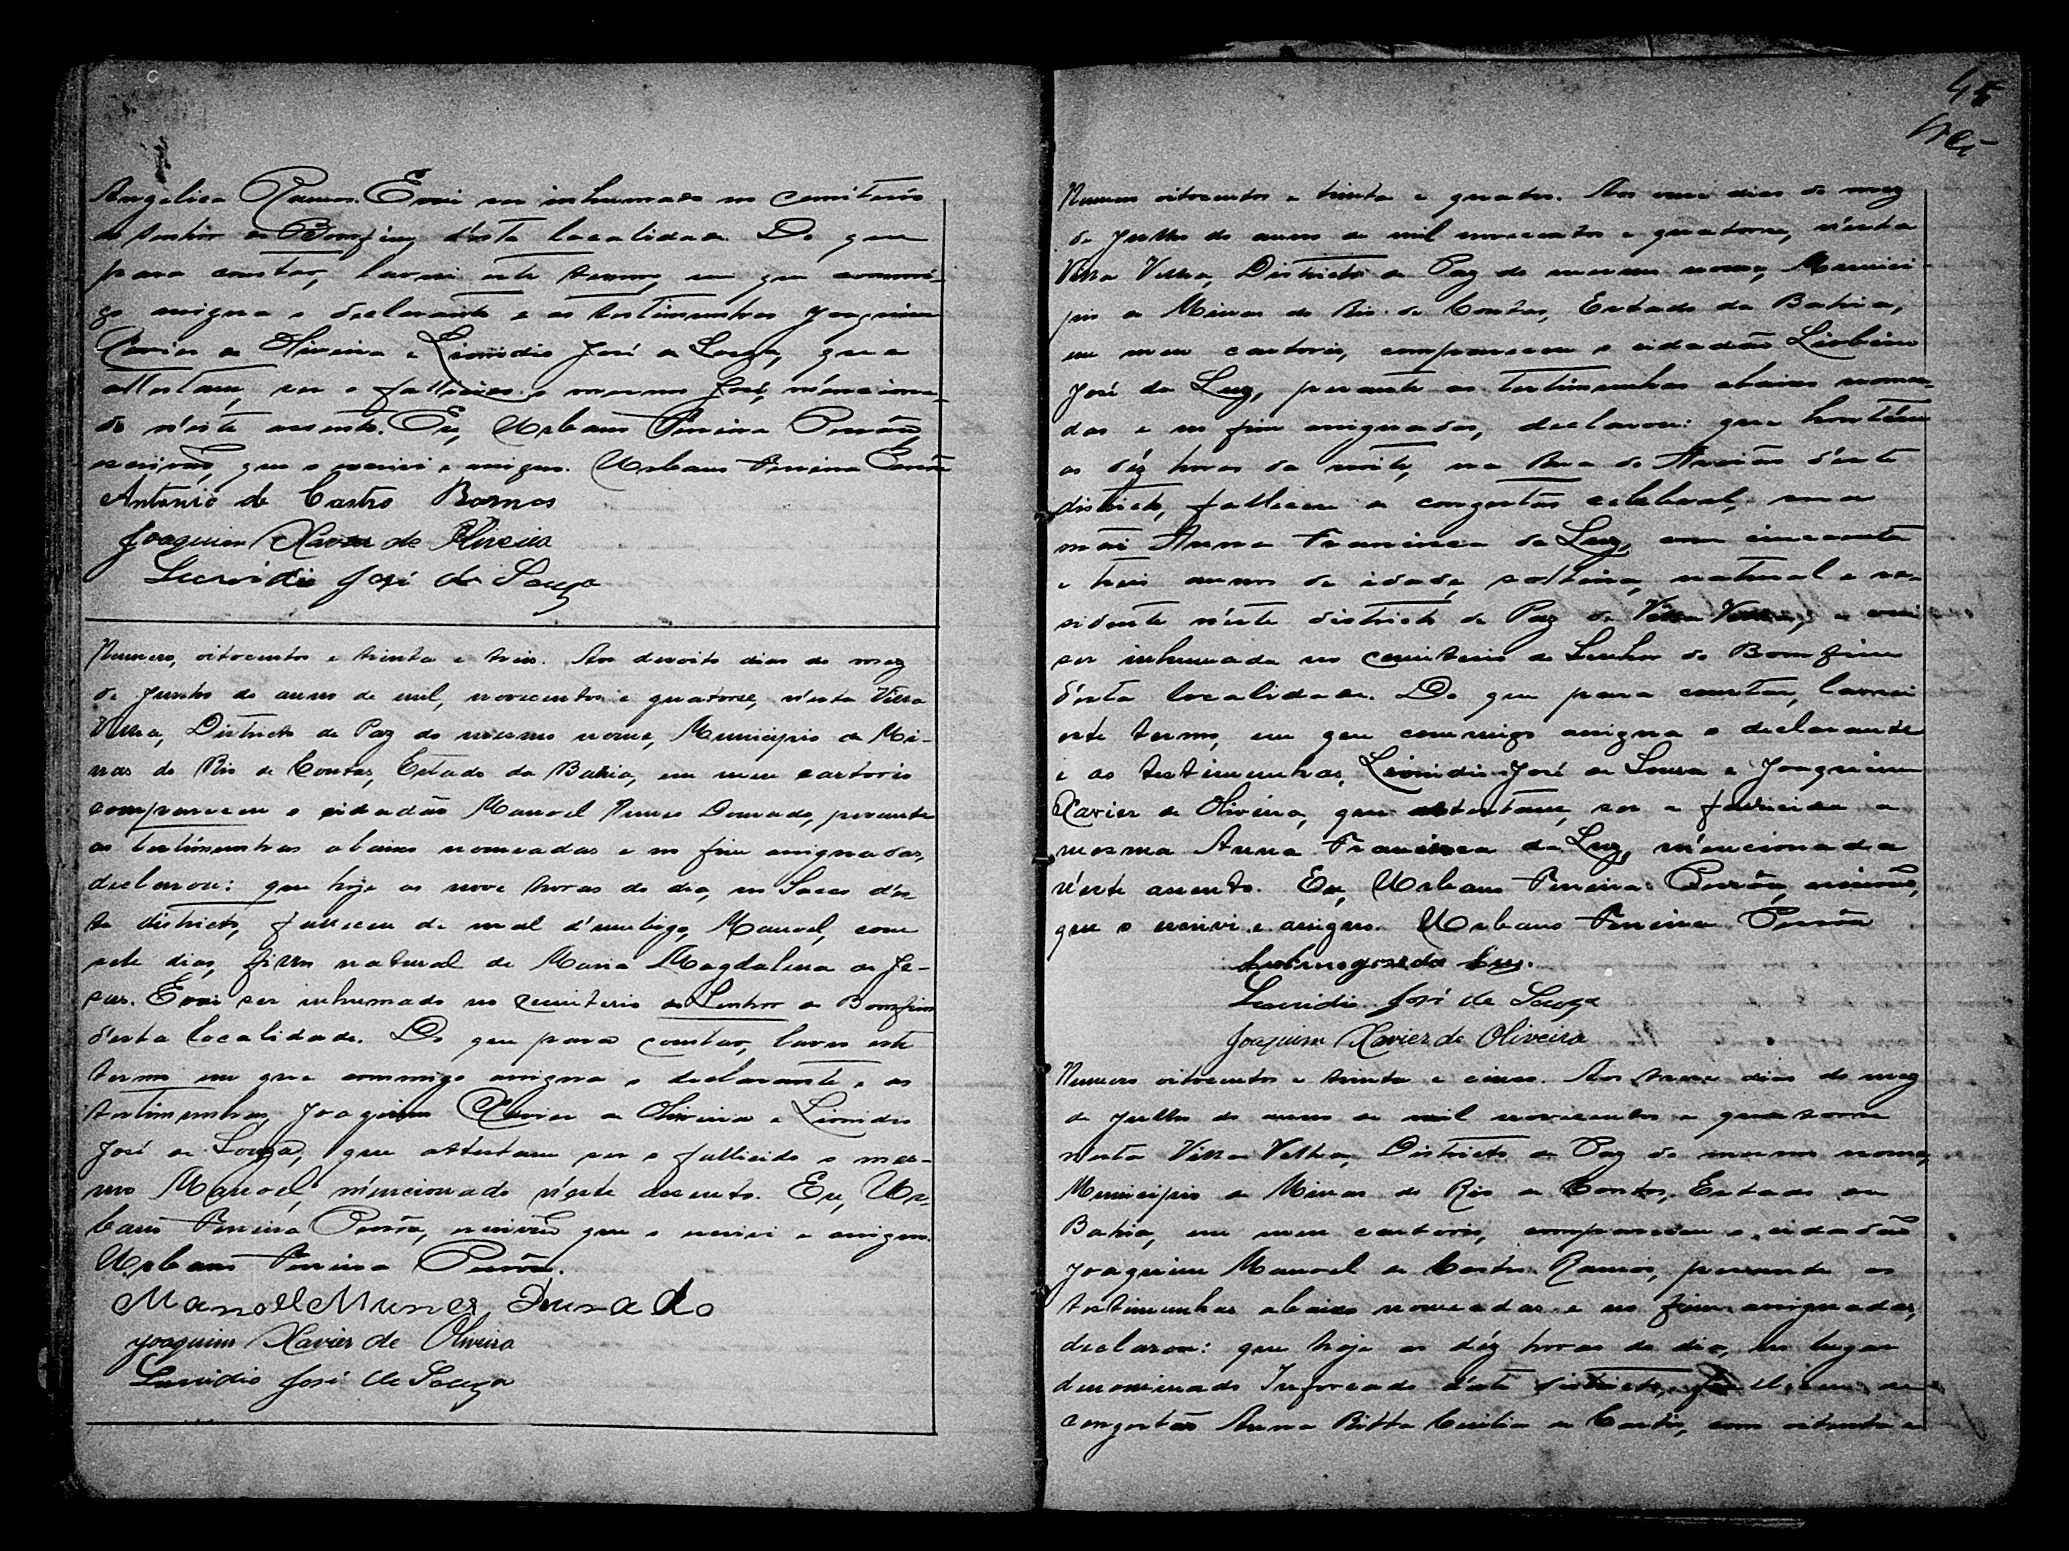 Angelica Ramos. E vai ser inhumado no cemiterio
do Senhor do Bomfim d'esta localidade. Do que
para constar, lavrei este termo, em que commi-
go assigna o declarante e as testimunhas Joaquim
Xavier de Oliveira e Lionidio José de Souza, que
attestam, ser o fallicido o mesmo José, menciona-
do n'este assento. Eu, Urbano Pereira
escrivão, que o escrivi e assigno. Urbano Pereira
Antonio de Castro Ramos
Joaquim Xavier de Oliveira
Leonidio José de Souza
Numero, oitocentos e trinta e treis. Aos desoito dias do mez
de Junho do anno de mil, novecentos e quatorse, n'esta Villa
Velha, Districto de Paz do mesmo nome, Municipio de Mi-
nas do Rio de Contas, Estado da Bahia, em meu cartorio
compareceu o cidadão Manoel Nunes Dourado, perante
as testimunhas abaixo nomeadas e no fim assignadas,
declarou: que hoje as nove horas do dia, no Sacco d'es-
te districto, falleceu de mal d'umbigo, Manoel, com
sete dias, filho natural de Maria Magdalena de Je-
sus. E vai ser inhumado no cemiterio do Senhor do Bomfim
d'esta localidade. Do que para constar, lavro este
termo em que commigo assigna o declarante e as
testimunhas Joaquim Xavier de Oliveira e Lionidio
José de Souza, que attestam ser o fallicido o mes-
mo Manoel, mencionado n'este assento. Eu, Ur-
bano Pereira escrivão que o escrivi e assigno.
Urbano Pereira
Manoel Nunes Durado
Joaquim Xavier de Oliveira
Leonidio José de Souza
Numero oitocentos e trinta e quatro. Aos onze dias do mez
de Julho do anno de mil novecentos e quatorze, n'esta
Villa Velha, Districto de Paz do mesmo nome, Munici-
pio de Minas do Rio de Contas, Estado da Bahia,
em meu cartorio, compareceu o cidadão
José da Luz, perante as testimunhas abaixo nomea-
das e no fim assignadas, declarou: que hontém
as déz horas da noite, na Rua do d'este
districto, falleceu de congestão celebral, sua
mãi Anna Francisca da Luz, com cincoenta
e treis annos de idade, solteira, natural e re-
sidente n'este districto de Paz de Villa Velha, e vai
ser inhumada no cemiterio do Senhor do Bomfim
d'esta localidade. Do que para constar, lavrei
este termo, em que commigo assigna o declarante
e as testimunhas, Lionidio José de Souza e Joaquim
Xavier de Oliveira, que attestam, ser a fallicida a
mesma Anna Francisca da Luz, mencionada
n'este assento. Eu, Urbano Pereira escrivão,
que o escrivi e assigno. Urbano Pereira
José da Luz.
Leonidio José de Souza
Joaquim Xavier de Oliveira
Numero oitocentos e trinta e cinco. Aos treze dias do mez
de Julho do anno de mil novecentos e quatorze
n'esta Villa Velha, Districto de Paz do mesmo nome,
Municipio de Minas do Rio de Contas, Estado da
Bahia, em meu cartorio, compareceu o cidadão
Joaquim Manoel de Castro Ramos, perante as
testimunhas abaixo nomeadas e no fim assignadas,
declarou: que hoje as déz horas do dia, no lugar
denominado Inforcado d'este districto, falleceu de
congestão Anna Ritta Cecilia de Castro, com oitenta e